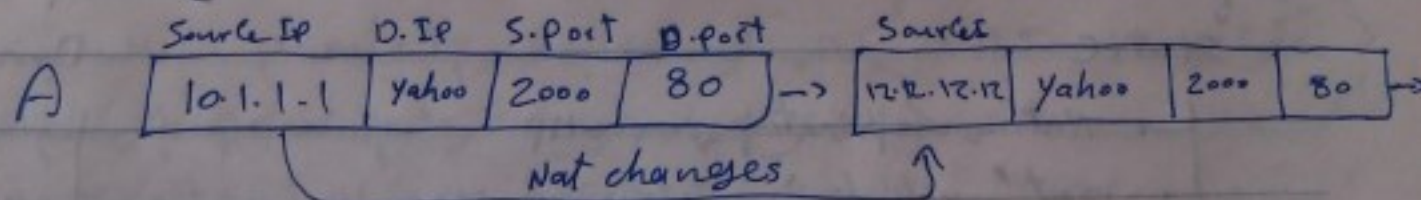 Source Ip D.Ip S.port D.port Source
A 10.1.1.1 Yahoo 2000 80 -> 12.12.12.12 Yahoo 2000 80 ->
Nat changes